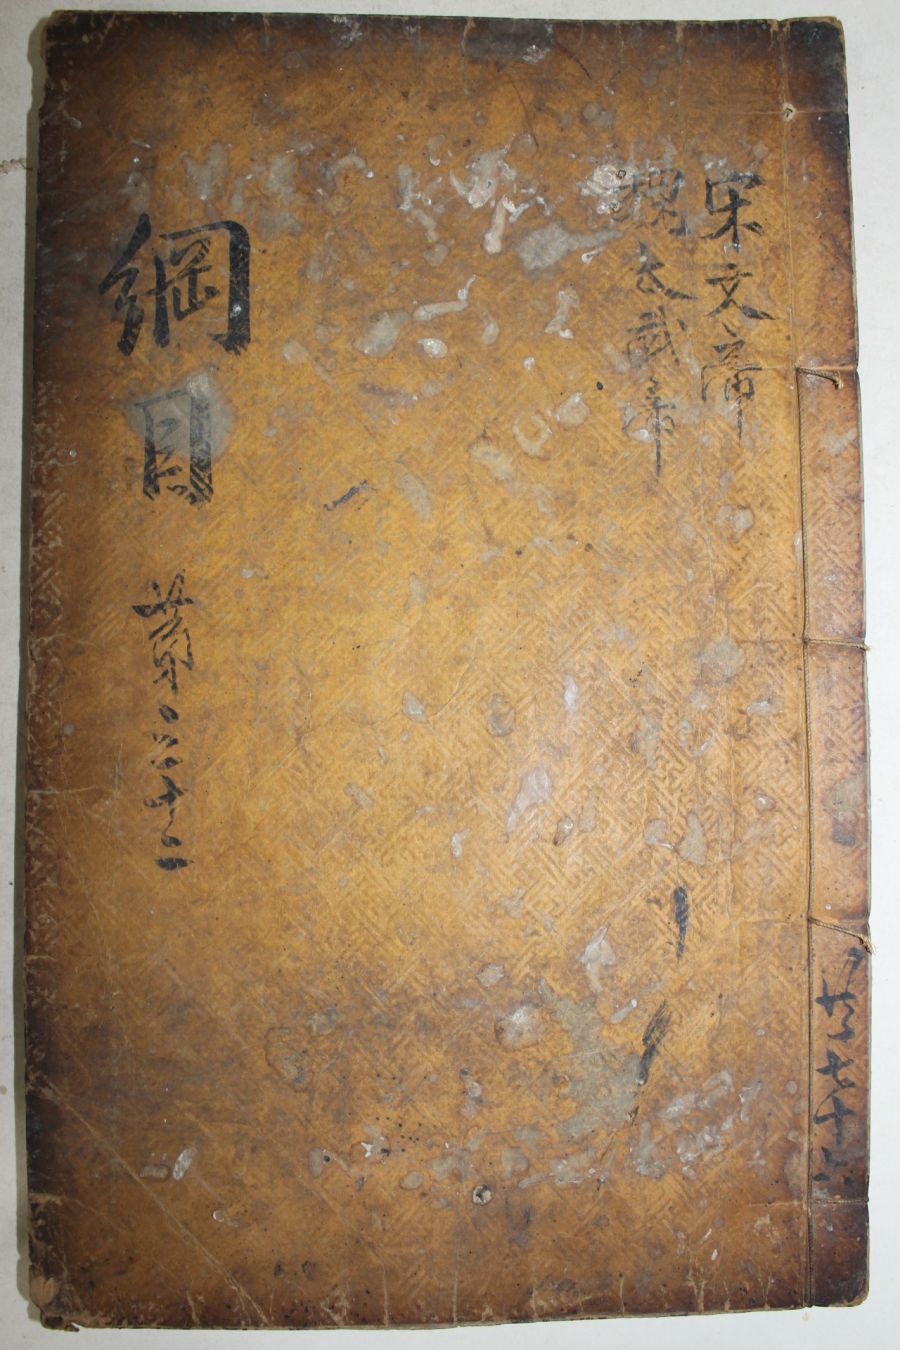 宋文帝
魏太武帝
綱目
第二十二
共七十